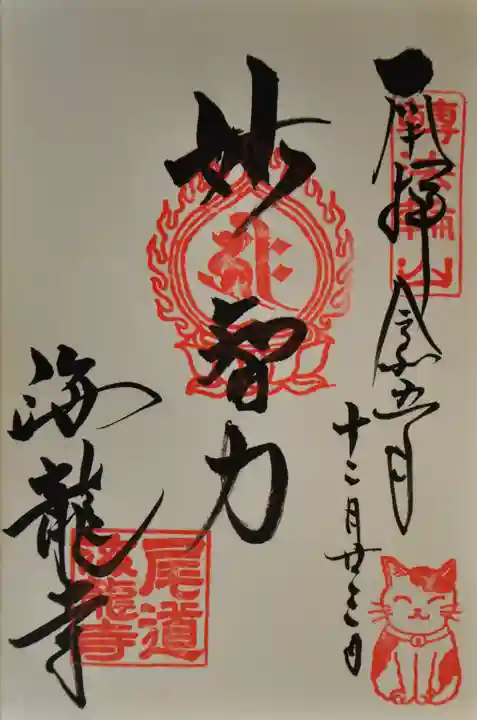 奉拝 令和五年
轉法輪山
十二月廿三日
妙智力
海龍寺
尾道
海龍寺